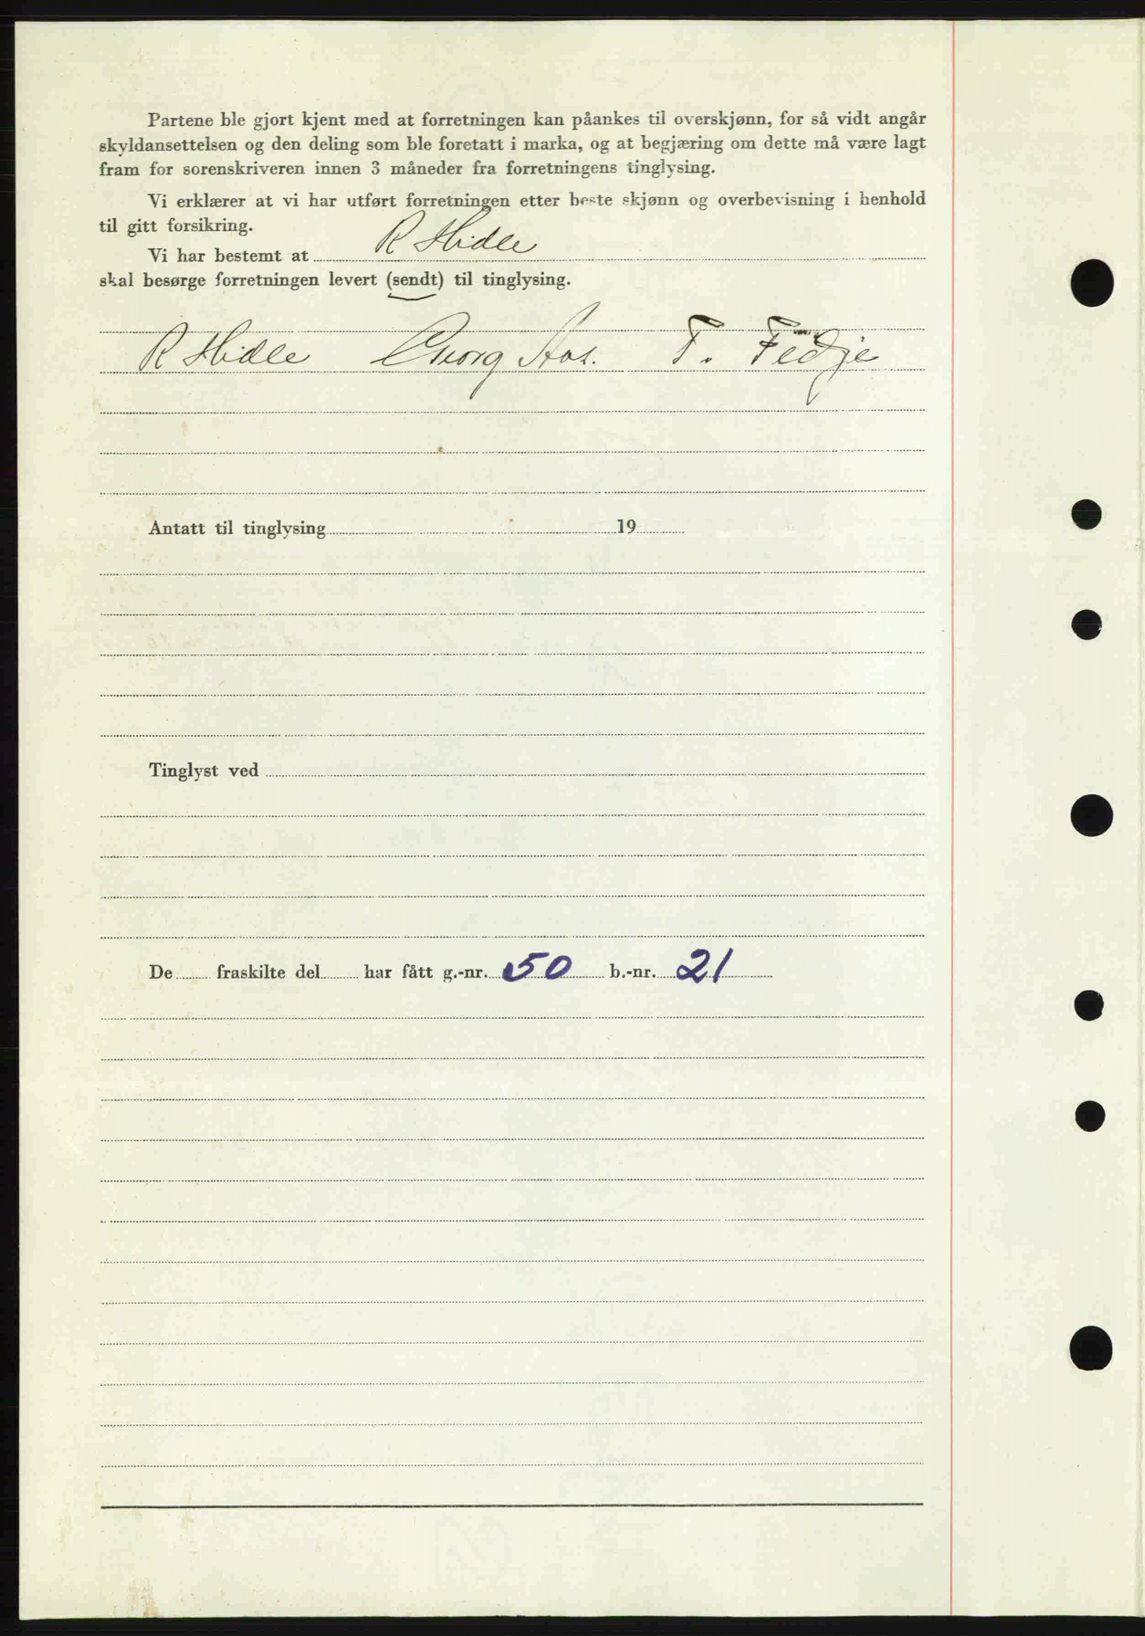 Partene ble gjort kjent med at forretningen kan påankes til overskjønn, for så vidt angår
skyldansettelsen og den deling som ble foretatt i marka, og at begjæring om dette må være lagt
fram for sorenskriveren innen 3 måneder fra forretningens tinglysing.
Vi erklærer at vi har utført forretningen etter beste skjønn og overbevisning i henhold
til gitt forsikring.
Vi har bestemt at R Hidle
skal besørge forretningen levert (sendt) til tinglysing.
R Hidle Georg Aas. T. Fedje
Antatt til tinglysing 19
Tinglyst ved
De fraskilte del har fått g.-nr. 50 b.-nr. 21